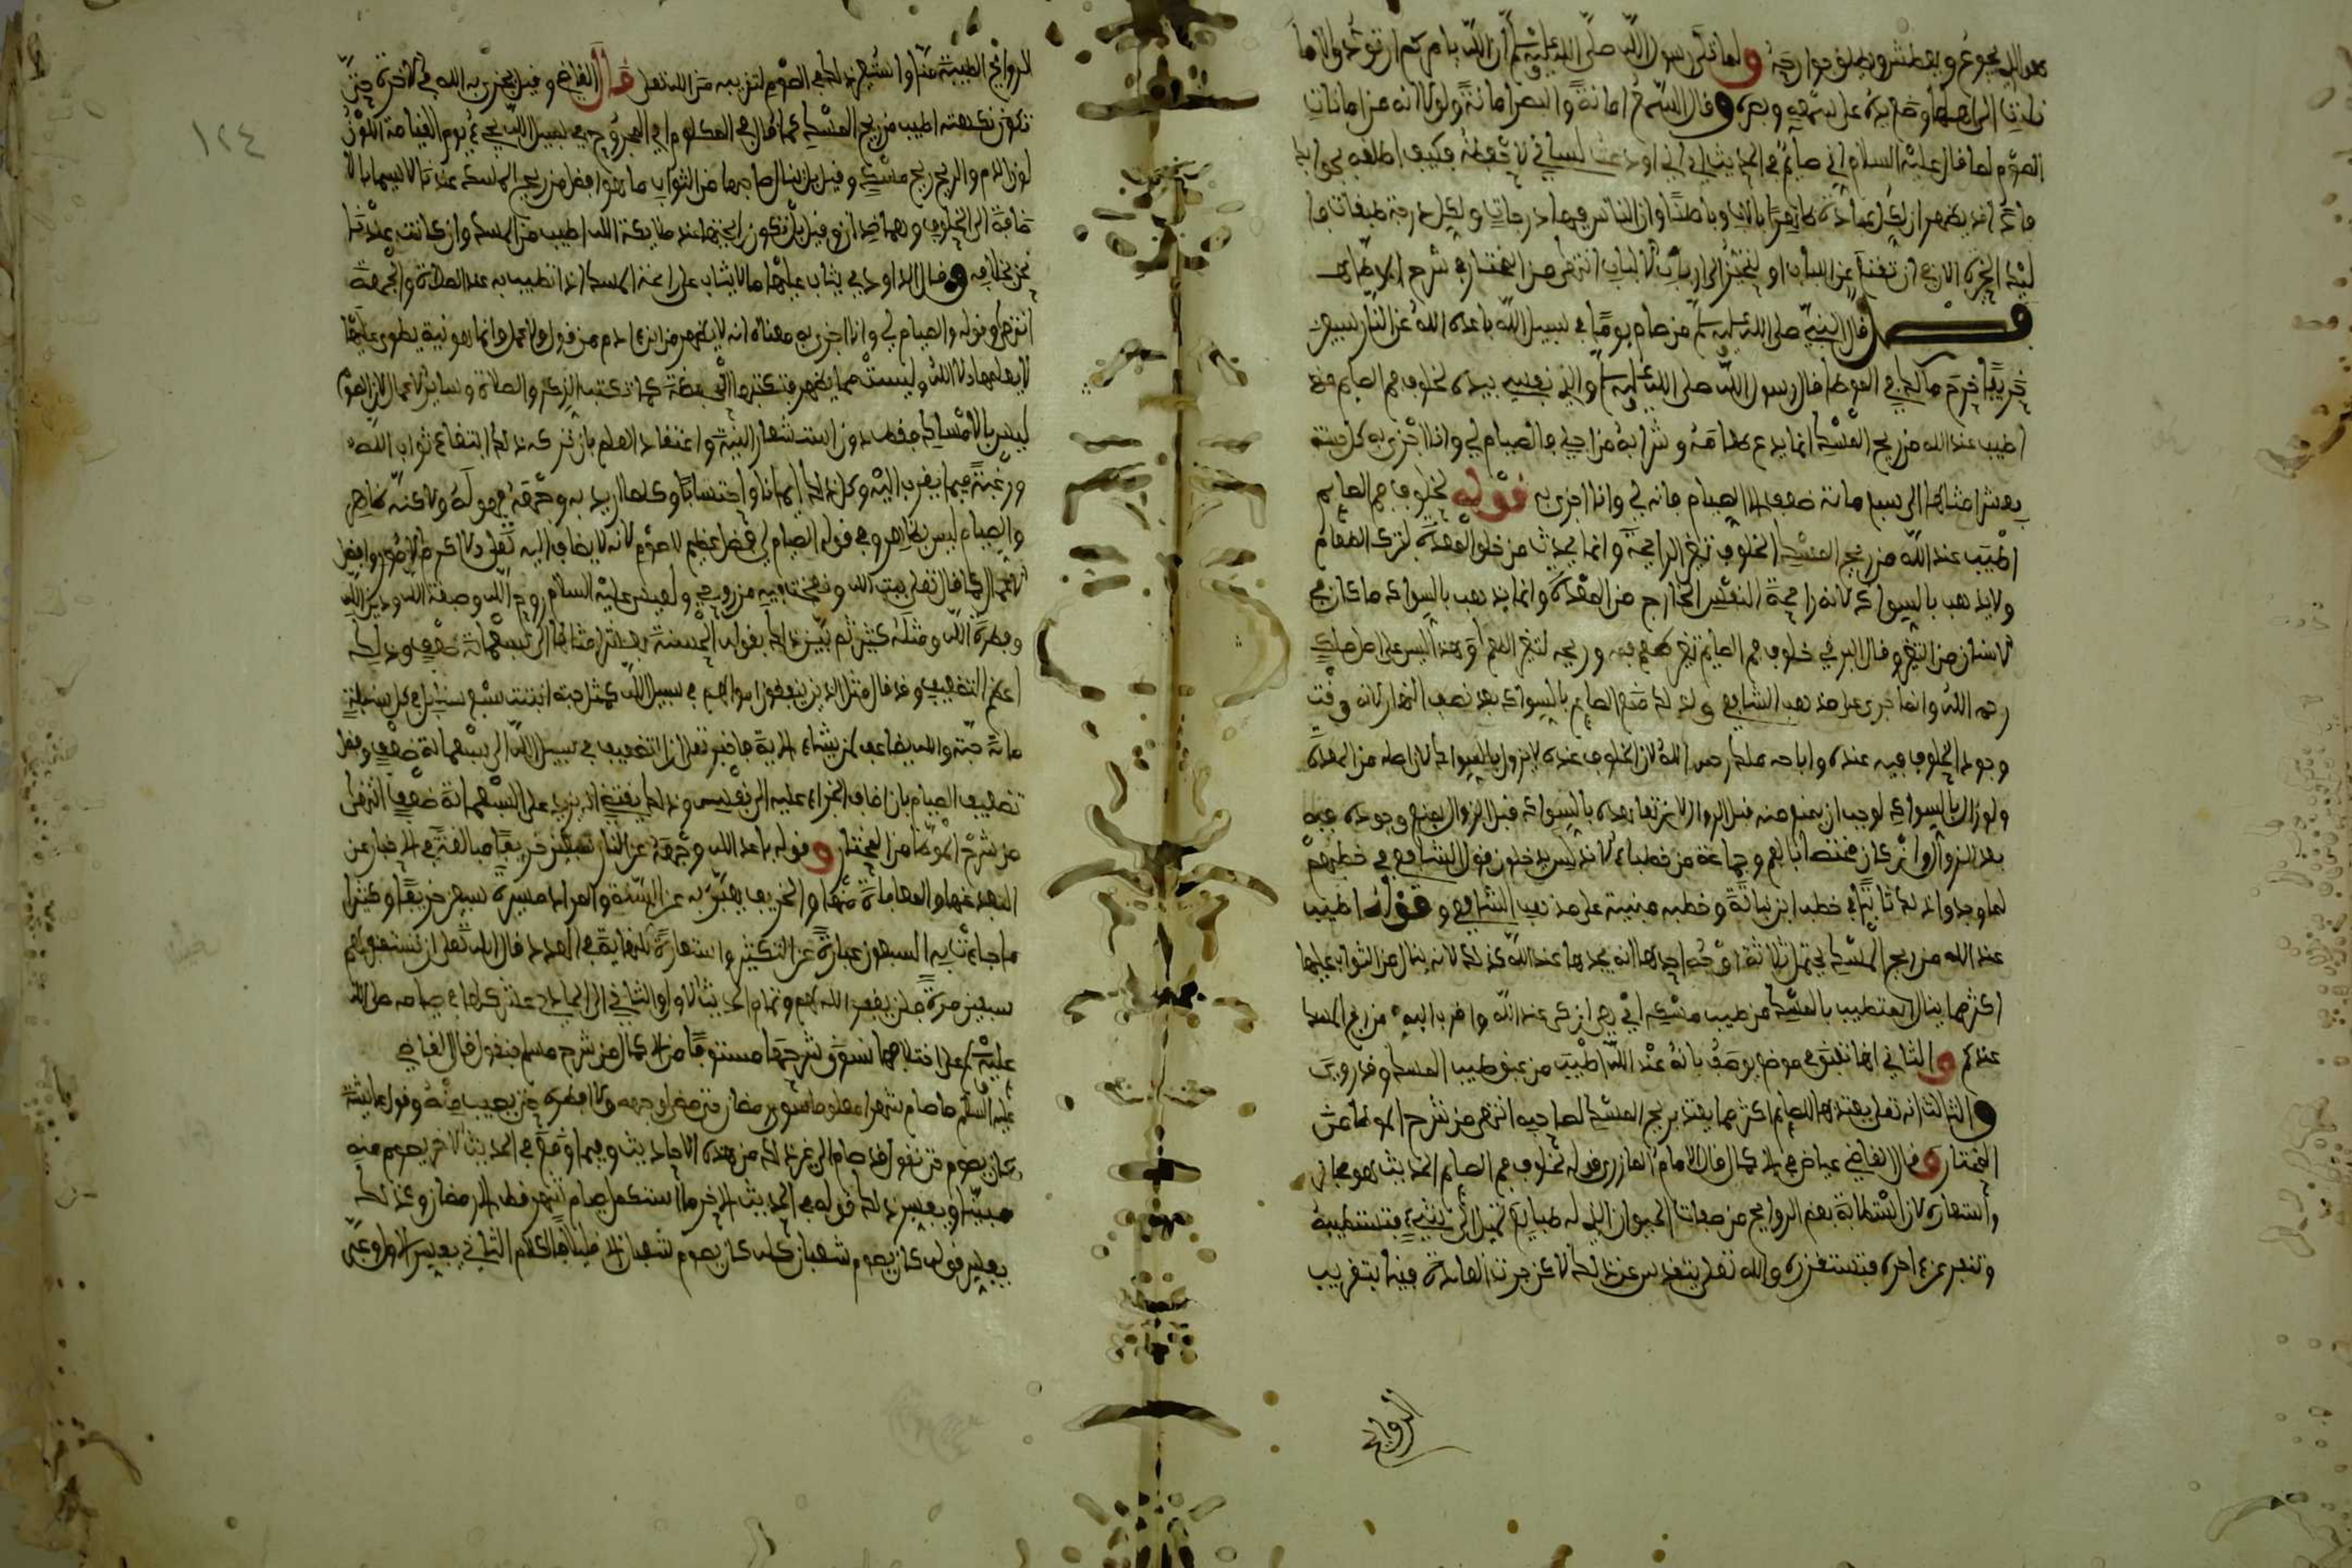 هو الذي يجوع ويعطش ويطلق جوارحه ولما تلى رسول الله صلى الله عليه وسلم ان الله يامركم ان تودوا الاما
نات الى اهلها وضع يده على سمعه وبصره وقال السمع امانة والبصر امانة ولولا انه من امانات
الصوم لما قال عليه السلام اني صايم في الحديث اي اني اودعت لساني لاحفظه فكيف اطلقه بجوابك
فاذا قد يظهر ان لكل عبادة ظاهرا وباطنا وان الناس فيها درجات ولكل درجة طبقات فا
ليك الخيرة الان في ان تقنع عن اللباب او تتحيز الى ارباب الالباب انتهى من المختار في شرح
قال النبي صلى الله عليه وسلم من صام يوما في سبيل الله باعده الله عن النار سبعين
خريفا خرج مالك في الموطا قال رسول الله صلى الله عليه وسلم والذي نفسي بيده لخلوف فم الصايم
اطيب عند الله من ريح المسك انما يدع طعامه وشرابه من اجلي فالصيام لي وانا اجزي به كل حسنة
بعشر امثالها الى سبع مائة ضعف الا الصيام فانه لي وانا اجزي به قوله لخلوف فم الصايم
اطيب عند الله من ريح المسك الخلوف تغير الرايحة وانما يحدث من خلو المعدة لترك الطعام
ولا يذهب بالسواك لانه رايحة النفس الخارج من المعدة وانما يذهب بالسواك ما كان في
الاسنان من التغير وقال البرقي خلوف فم الصايم تغير طعم فمه وريحه لتغير الطعام وهذا ليس على اصل ملك
رحمه الله وانما جرى على مذهب الشافعي ولذلك منع الصايم بالسواك بعد نصف النهار لانه وقت
وجود الخلوف فيه عنده واباحه ملك رحمه الله لان الخلوف عنده لا يزول بالسواك لان اصله من المعدة
ولو زال بالسواك لوجب ان يمنع منه قبل الزوال لان تعاهده بالسواك قبل الزوال يمنع وجوده فيه
بعد الزوال وان كان مختصا بالفم وجماعة من خطباء الاندلس يدخلون قول الشافعي في خطبهم
لما وجدوا ذلك ثابتا في خطب ابن نباتة وخطبه مبنية على مذهب الشافعي وقوله اطيب
عند الله من ريح المسك يحتمل ثلاثة اوجه احدها انه يجدها عند الله كذلك لانه ينال من الثواب عليها
اكثر مما ينال المتطيب بالمسك من طيب مسكه اي هي ازكى عند الله واقرب اليه من ريح المسك
عندكم والثاني انها تعبق في موضع يوصف بانه عند الله اطيب من عبق طيب المسك وقد روي
والثالث انه تعلى يعتد بها للصايم اكثر مما يعتد بريح المسك لصاحبه انتهى من شرح الموطا من
المختار وقال القاضي عياض في الاكمال قال الامام المازري قوله لخلوف فم الصايم الحديث هو مجاز
واستعارة لان استطابة بعض الروايح من صفات الحيوان الذي له طبايع تميل الى شيء فتستطيبه
وتنفر عن اخر فتستقذره والله تعلى يتقدس عن ذلك لاكن جرت العادة فينا بتقريب
الروايح
١٢٤
الروايح الطيبة منا واستعير ذلك في الصوم لتقريبه من الله تعلى قال القاضي وقيل يجزيه الله في الاخرة حتى
تكون نكهته اطيب من ريح المسك كما قال في المكلوم اي المجروح في سبيل الله يجيء يوم القيامة اللون
لون الدم والريح ريح مسك وقيل بل ينال صاحبها من الثواب ما هو افضل من ريح المسك عندنا لا سيما بالا
ضافة الى الخلوف وهما ضدان وقيل بل تكون رايحتها عند ملايكة الله اطيب من المسك وان كانت عندنا
نحن بخلافه وقال الداودي يثاب عليها ما لا يثاب على رايحة المسك اذا تطيب به عند الصلاة والجمعة
انتهى وقوله والصيام لي وانا اجزي به معناه انه لا يظهر من ابن ادم من قول ولا عمل وانما هو نية ينطوي عليها
لا يعلمها الا الله وليست مما يظهر فتكتبها الحفظة كما تكتب الذكر والصلاة وساير الاعمال لان الصوم
ليس بالامساك فقط دون استشعار النية واعتقاد العلم بان تركه ذلك ابتغاء ثواب الله
ورغبة فيما يقرب اليه وكل ذلك ايمانا واحتسابا وكلما اريد به وجهه فهو له ولاكنه ظاهر
والصيام ليس بظاهر وفي قوله الصيام لي فضل عظيم للصوم لانه لا يضاف اليه تعلى الا اكرم الامور وافضل
الاعمال كما قال تعلى بيت الله ونفخت فيه من روحي ولعيسى عليه السلام روح الله وصبغة الله ودين الله
وفطرة الله ومثله كثير ثم بين ذلك بقوله الحسنة بعشر امثالها الى سبعمائة ضعف وذلك
اعظم التضعيف وقد قال مثل الذين ينفقون اموالهم في سبيل الله كمثل حبة انبتت سبع سنابل في كل سنبلة
مائة حبة والله يضاعف لمن يشاء الاية فاخبر تعلى ان التضعيف في سبيل الله الى سبعمائة ضعف وفضل
تضعيف الصيام بان اضاف الجزاء عليه الى نفسه وذلك يقتضي انه يزيد على السبعمائة ضعف انتهى
من شرح الموطا من المختار وقوله باعد الله وجهه عن النار سبعين خريفا مبالغة في الاخبار عن
البعد عنها والمعاملة منها والخريف يعبر به عن السنة والمراد مسيرة سبعين خريفا وكثيرا
ما جاءت فيه السبعون عبارة عن التكثير واستعارة للنهاية في العدد قال الله تعلى ان تستغفر لهم
سبعين مرة فلن يغفر الله لهم وتمام الحديث الاول والثاني الى الحادي عشر كلها في صيامه صلى الله
عليه وسلم على اختلافها نسوق شرحها مستوفا من الاكمال من شرح مسلم فنقول قال القاضي
عليه السلم ما صام شهرا معلوما سوى رمضان حتى مضى لوجهه ولا افطره حتى يصيب منه وقول عايشة
كان يصوم حتى نقول قد صام الى غير ذلك من هذه الاحاديث وفيما وقع في الحديث الاخر يصوم منه
مبينا ويفسر ذلك قوله في الحديث الاخر ما استكمل صيام شهر قط الا رمضان وكذلك
يفسر قوله كان يصوم شعبان كله كان يصوم شعبان الا قليلا الكلام الثاني يفسر الاول وعبر